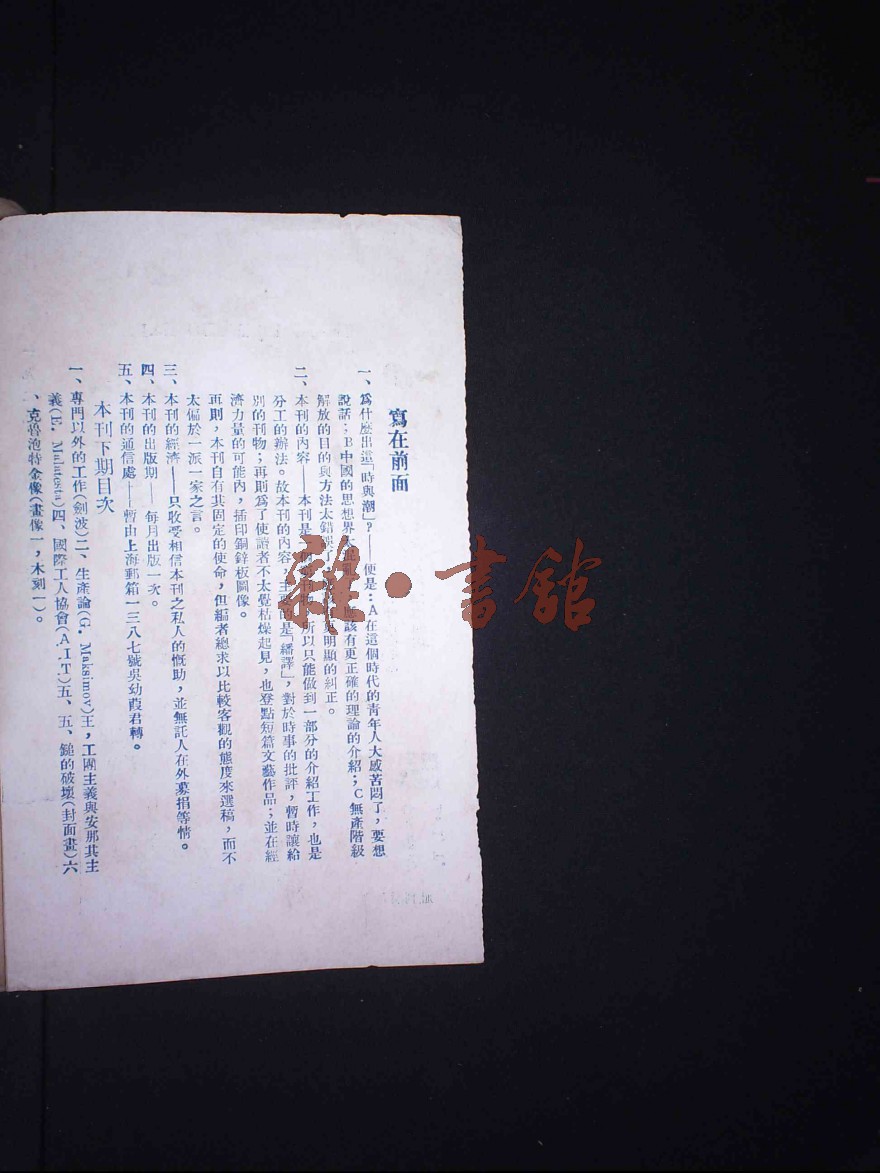 寫在前面
一、爲什麼出這「時與潮」？——便是：A在這個時代的青年人大感苦悶了，要想
說話；B中國的思想界 該有更正確的理論的介紹；C無產階級
解放的目的與方法太錯誤了 明顯的糾正。
二、本刊的內容——本刊是 所以只能做到一部分的介紹工作，也是
分工的辦法。故本刊的內容，主要的是「繙譯」，對於時事的批評，暫時讓給
別的刊物；再則爲了使讀者不太覺枯燥起見，也登點短篇文藝作品；並在經
濟力量的可能內，插印銅鋅板圖像。
再則，本刊自有其固定的使命，但編者總求以比較客觀的態度來選稿，而不
太偏於一派一家之言。
三、本刊的經濟——只收受相信本刊之私人的慨助，並無託人在外募捐等情。
四、本刊的出版期——每月出版一次。
五、本刊的通信處——暫由上海郵箱一三八七號吳幼葭君轉。
本刊下期目次
一、專門以外的工作（劍波）二、生產論（G. Maksimov）王，工團主義與安那其主
義（E. Malatesta）四、國際工人協會（A.I.T.）五、五、鎚的破壞（封面畫）六
、克魯泡特金像（畫像一，木刻一）。
雜·書館